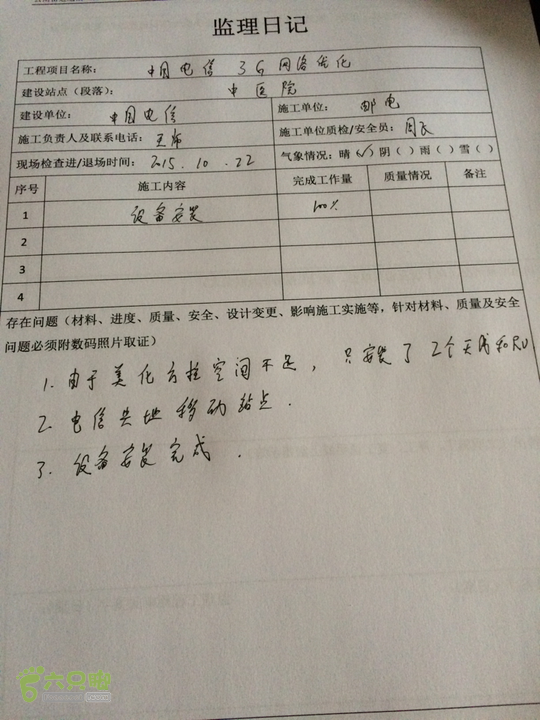 监理日记
工程项目名称: 中国电信 3G 网络优化
建设站点（段落）: 中医院
建设单位: 中国电信 施工单位: 邮电
施工负责人及联系电话: 王 施工单位质检/安全员: 周
现场检查进/退场时间: 2015.10.22 气象情况: 晴（√）阴（ ）雨（ ）雪（ ）
序号 施工内容 完成工作量 质量情况 备注
1 设备安装 100%
2
3
4
存在问题（材料、进度、质量、安全、设计变更、影响施工实施等，针对材料、质量及安全
问题必须附数码照片取证）
1. 由于美化方柱空间不足，只安装了2个天线和RU
2. 电信共地移动站点.
3. 设备安装完成.
六只脚